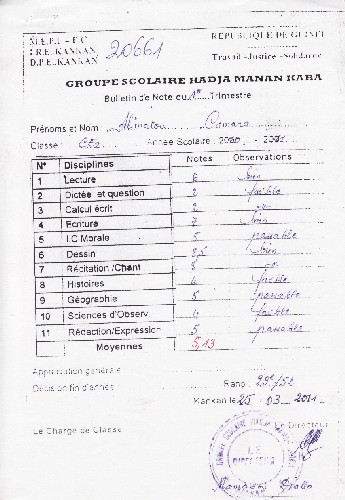 M.E.P.I. – E.C
I.R.E. KANKAN
D.P.E. KANKAN
20661
REPUBLIQUE DE GUINEE
Travail -Justice -Solidarité
GROUPE SCOLAIRE HADJA MANAN KABA
Bulletin de Note du 1er Trimestre
Prénoms et Nom : Aminatou Camara
Classe : CE2 Année Scolaire : 2010 - 2011
N° Disciplines Notes Observations
1 Lecture 6 bien
2 Dictée et question 2 faible
3 Calcul écrit 2 -"-
4 Ecriture 7 bien
5 I.C Morale 5 passable
6 Dessin bien
7 Récitation /Chant -"-
8 Histoires 4 faible
9 Géographie 5 passable
10 Sciences d'Observ. 4 faible
11 Rédaction/Expression 5 passable
Moyennes 5,13
Appréciation générale
Décision fin d'année
Rang : 29e/52
Kankan le 25 - 03 - 2011
Le Chargé de Classe
Le Directeur
GROUPE SCOLAIRE HADJA MANAN
LE DIRECTEUR